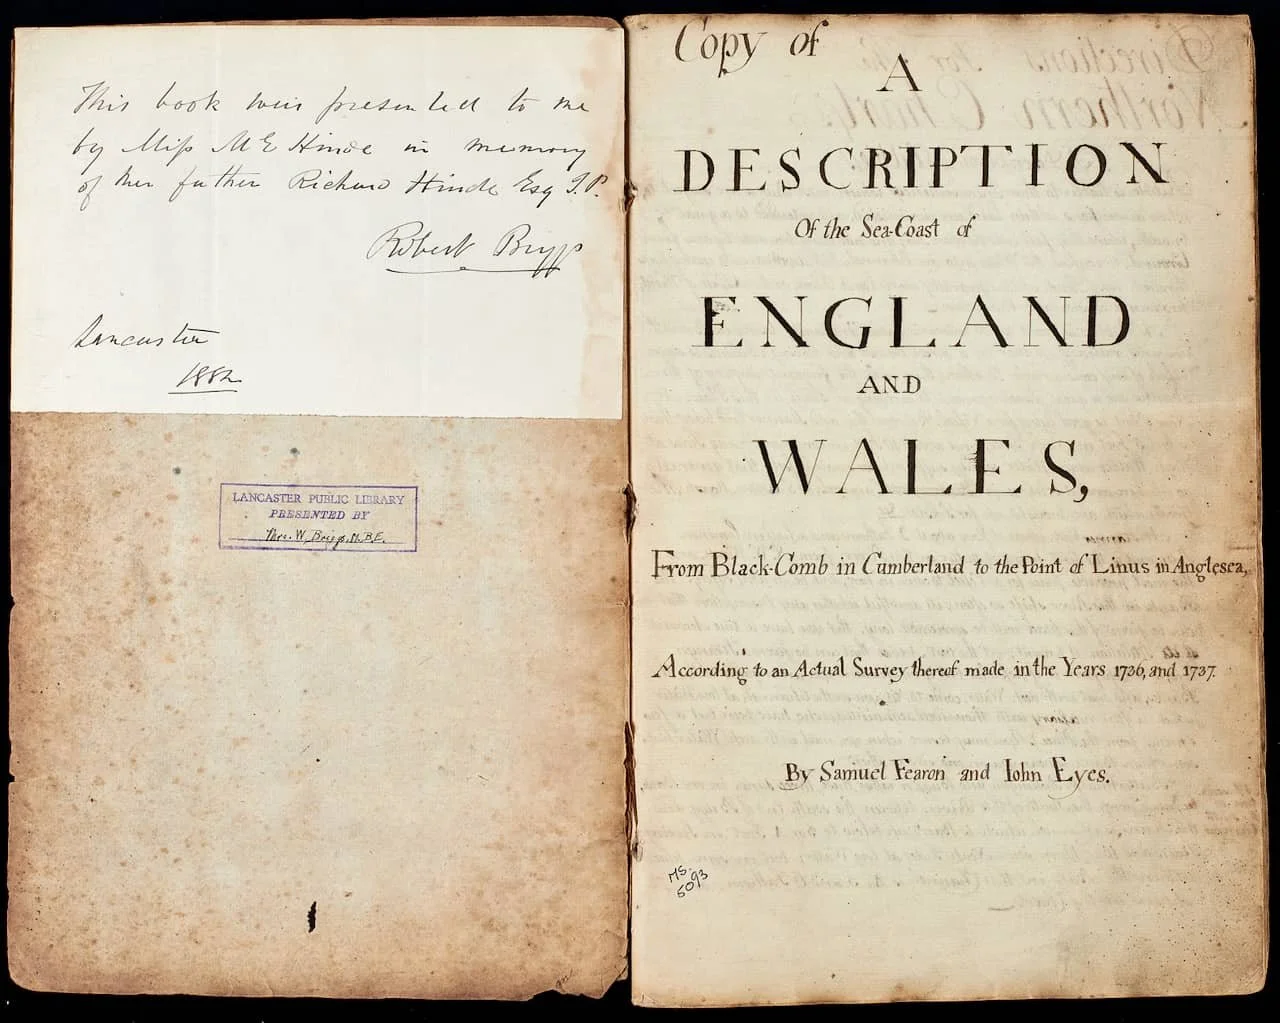 This book was presented to me
by Miss M E Hinde in memory
of her father Richard Hinde Esq J.P.
Robert Briggs
Lancaster
1882
LANCASTER PUBLIC LIBRARY
PRESENTED BY
Thos. W. Briggs, M.B.E.
Copy of
A
DESCRIPTION
Of the Sea-Coast of
ENGLAND
AND
WALES,
From Black-Comb in Cumberland to the Point of Linus in Anglesea,
According to an Actual Survey thereof made in the Years 1736, and 1737.
By Samuel Fearon and Iohn Eyes.
MS.
5093